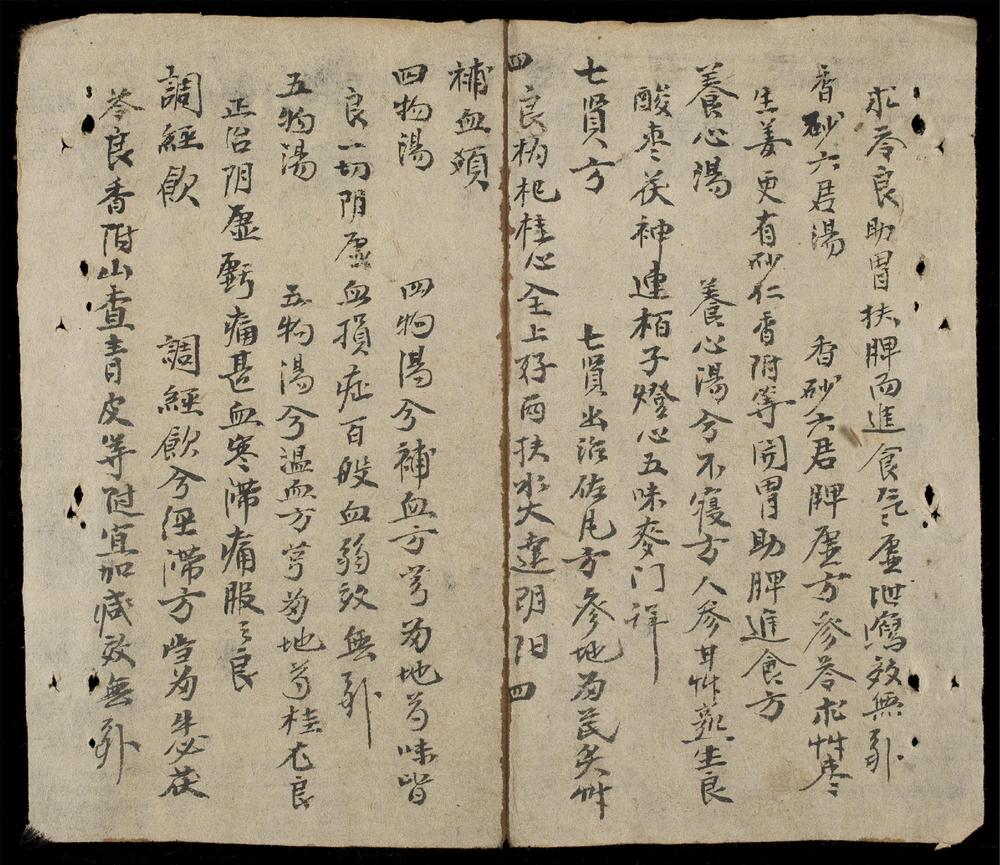 求苓良助胃扶脾而進食气虛泄瀉效無
香砂六君湯 香砂六君脾虛方參苓求草枣
生姜更有砂仁香附等開胃助脾進食方
養心湯 養心湯兮不寝方人參甘草生良
酸枣茯神連栢子燈心五味麥门詳
七賢方 七賢出治佐凡方參地為民炙草
良枸杞桂心全上好兩扶水火達阴阳
補血類
四物湯 四物湯兮補血方芎为地芍味皆
良一切阴虛血損症百般血弱效無
五物湯 五物湯兮温血方芎为地芍桂尤良
正治阴虛虧痛甚血寒滞痛服之良
調經飲 調經飲兮經滞方当为牛必茯
苓良香附山查青皮等附宜加减效無